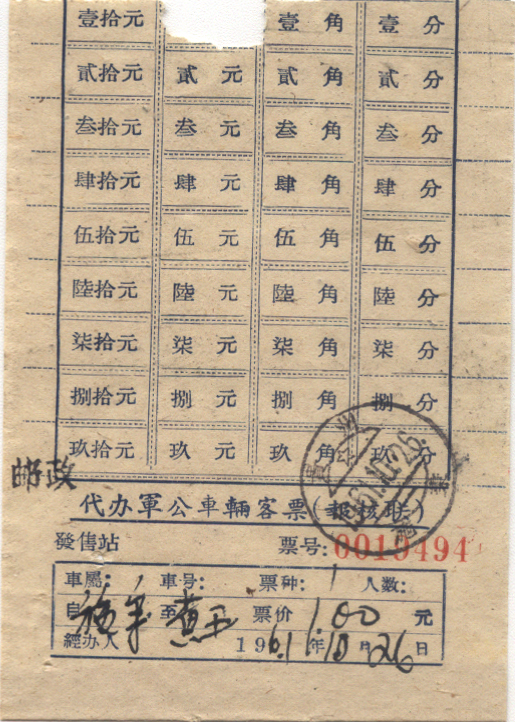 壹拾元 壹角 壹分
貳拾元 貳元 貳角 貳分
叁拾元 叁元 叁角 叁分
肆拾元 肆元 肆角 肆分
伍拾元 伍元 伍角 伍分
陸拾元 陸元 陸角 陸分
柒拾元 柒元 柒角 柒分
捌拾元 捌元 捌角 捌分
玖拾元 玖元 玖角 玖分
邮政
代办軍公車輛客票(報核联)
發售站 票号:0019494
車屬: 車号: 票种: 1 人数:
自 至 票价 1.00 元
經办人 1961年10月26日
1961.10.26.